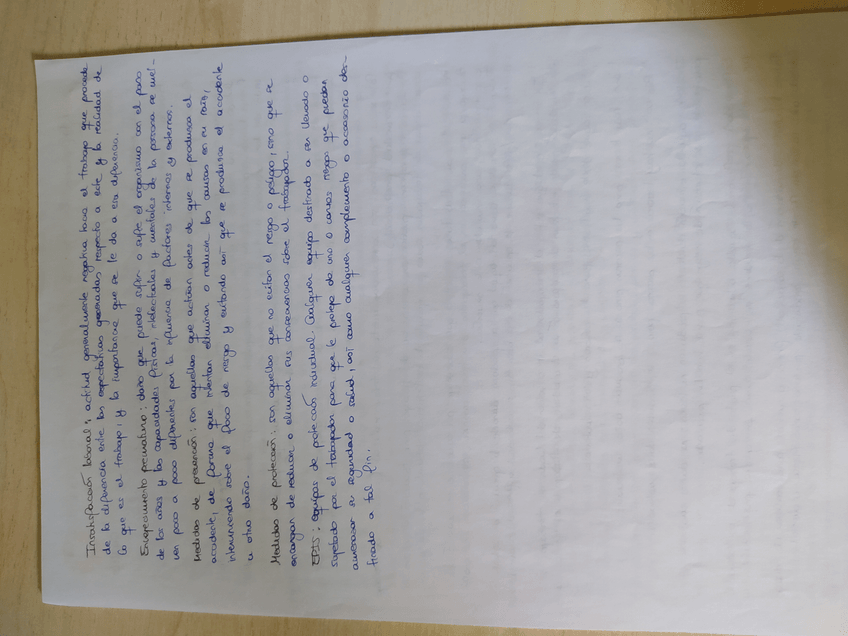 Insatisfacción laboral: actitud generalmente negativa hacia el trabajo que procede
de la diferencia entre las expectativas generadas respecto a este y la realidad de
lo que es el trabajo, y la importancia que se le da a esa diferencia.
Envejecimiento prematuro: daño que puede sufrir o sufre el organismo con el paso
de los años y las capacidades físicas, intelectuales y mentales de la persona se
ven poco a poco diferentes por la influencia de factores internos y externos.
Medidas de prevención: son aquellas que actúan antes de que se produzca el
accidente, de forma que intentan eliminar o reducir las causas en su raíz,
interviniendo sobre el foco de riesgo y evitando así que se produzca el accidente
u otro daño.
Medidas de protección: son aquellas que no evitan el riesgo o peligro, sino que se
encargan de reducir o eliminar sus consecuencias sobre el trabajador.
EPIS: equipos de protección individual. Cualquier equipo destinado a ser llevado o
sujetado por el trabajador para que le proteja de uno o varios riesgos que puedan
amenazar su seguridad o salud, así como cualquier complemento o accesorio des-
tinado a tal fin.